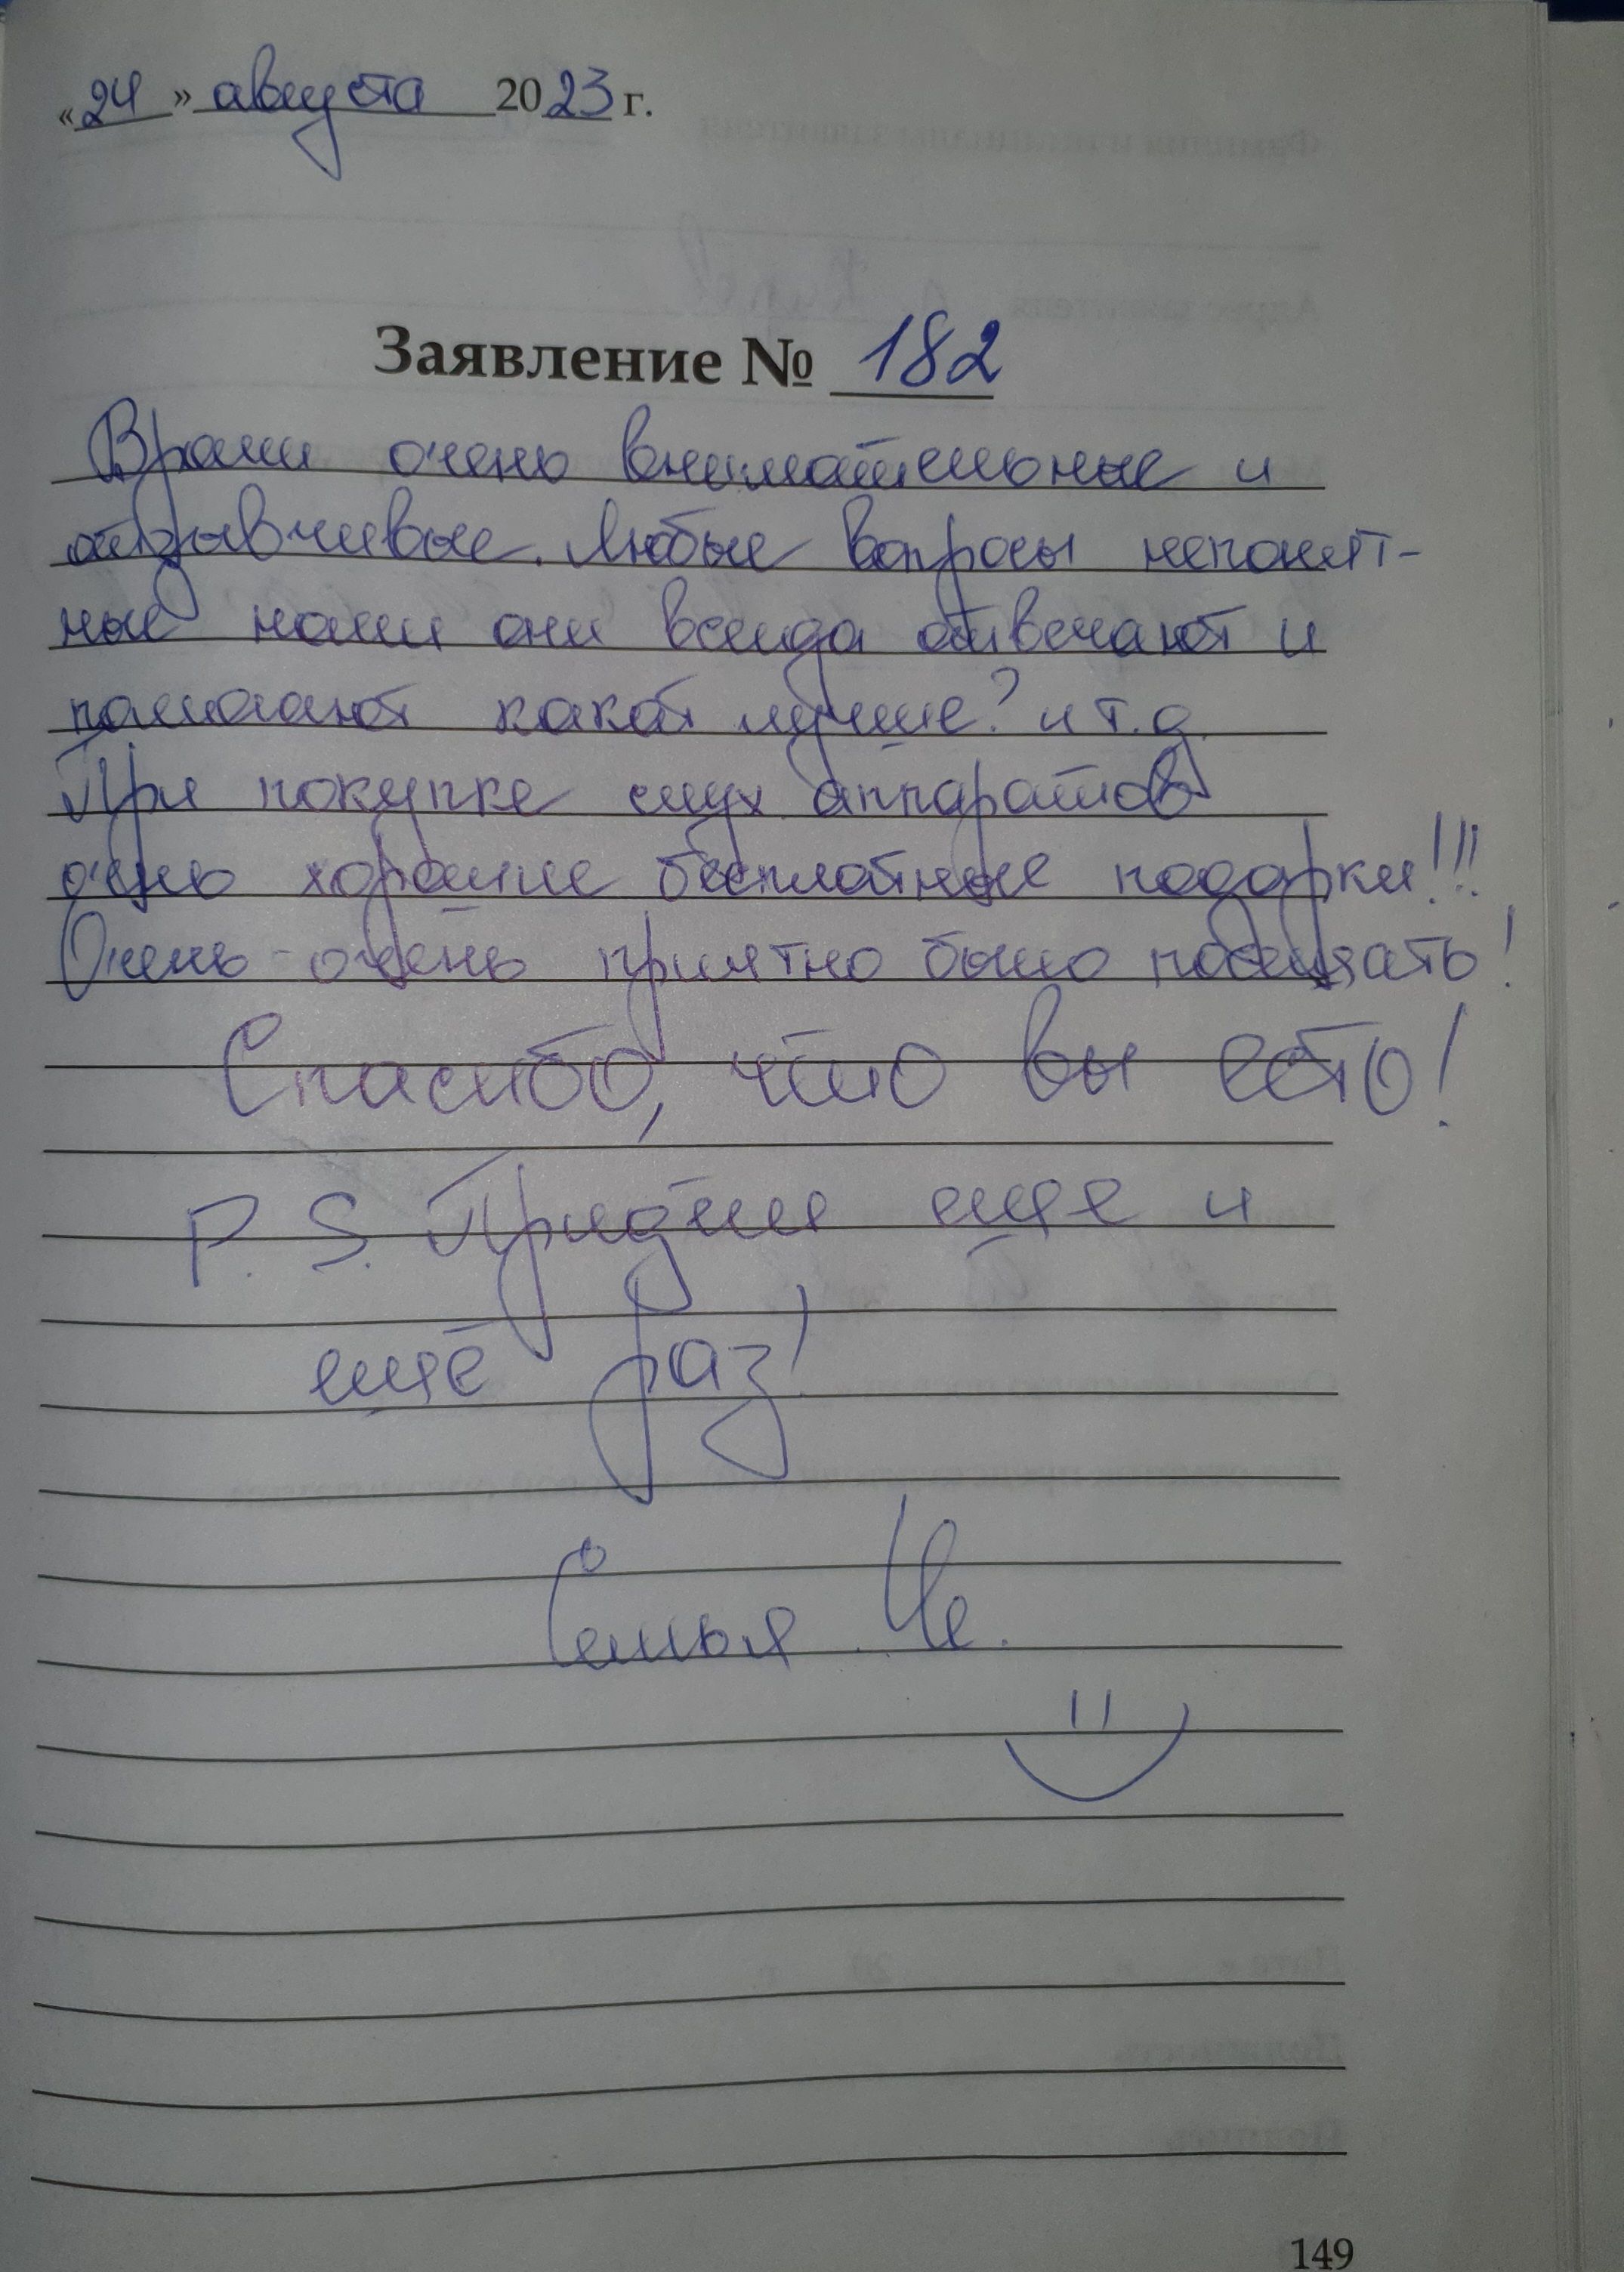 «24» августа 2023 г.
Заявление № 182
Врачи очень внимательные и
отзывчивые. Любые вопросы непонят-
ные наши они всегда отвечают и
помогают какой лучше? и т.д.
При покупке слух. аппаратов
очень хорошие бесплатные подарки!!!
Очень-очень приятно было посещать!
Спасибо, что вы есть!
P.S. Придём еще и
ещё раз!
Семья Че.
149